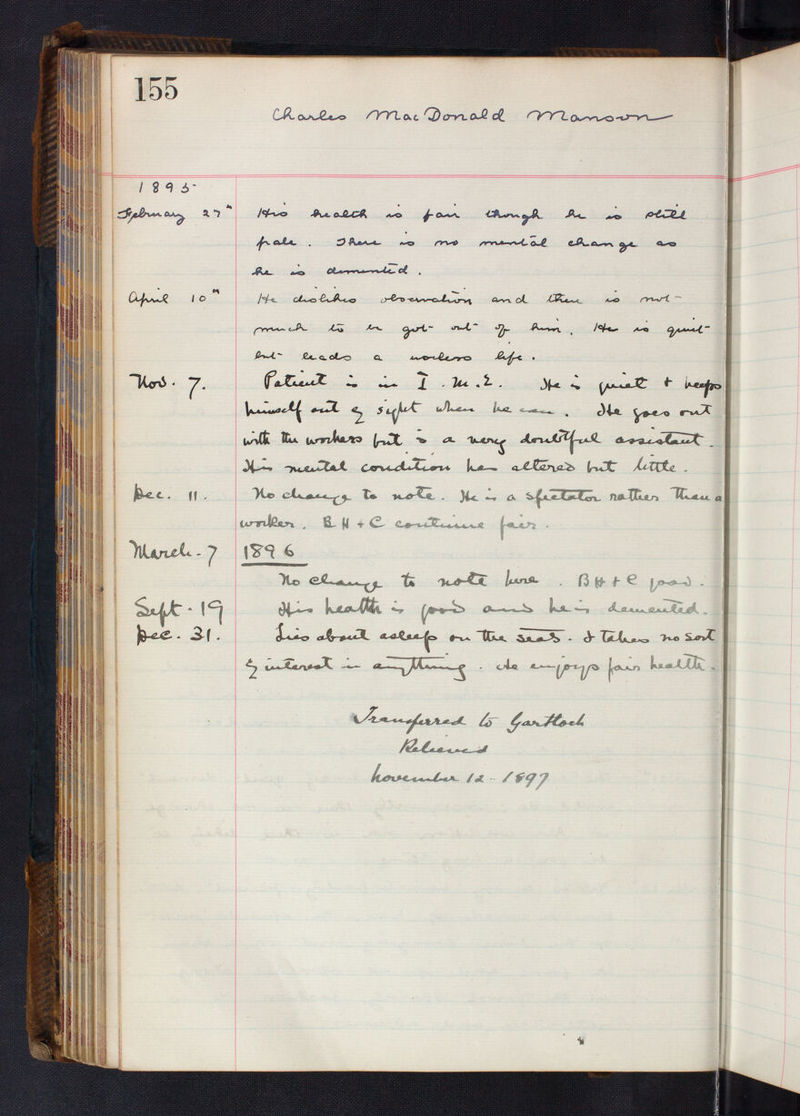 155
Charles MacDonald Manson
1895
February 27th His health is fair though he is still
pale. There is no mental change as
he is demented.
April 10th He dislikes observation and there is not
much to be got out of him. He is quiet
but leads a workers life.
Nov. 7. Patient is in I. M. 2. He is quiet & keeps
himself out of sight when he can. He goes out
with the workers but is a very doubtful assistant.
His mental condition has altered but little.
Dec. 11. No change to note. He is a spectator rather than a
worker. B H + C continue fair.
March - 7 1896
No change to note here. B H + C good.
Sept - 19 His health is good and he is demented.
Dec. 31. Lies about asleep on the seats. & takes no sort
of interest in anything. He enjoys fair health.
Transferred to Gartloch
Relieved
November 12 - 1897